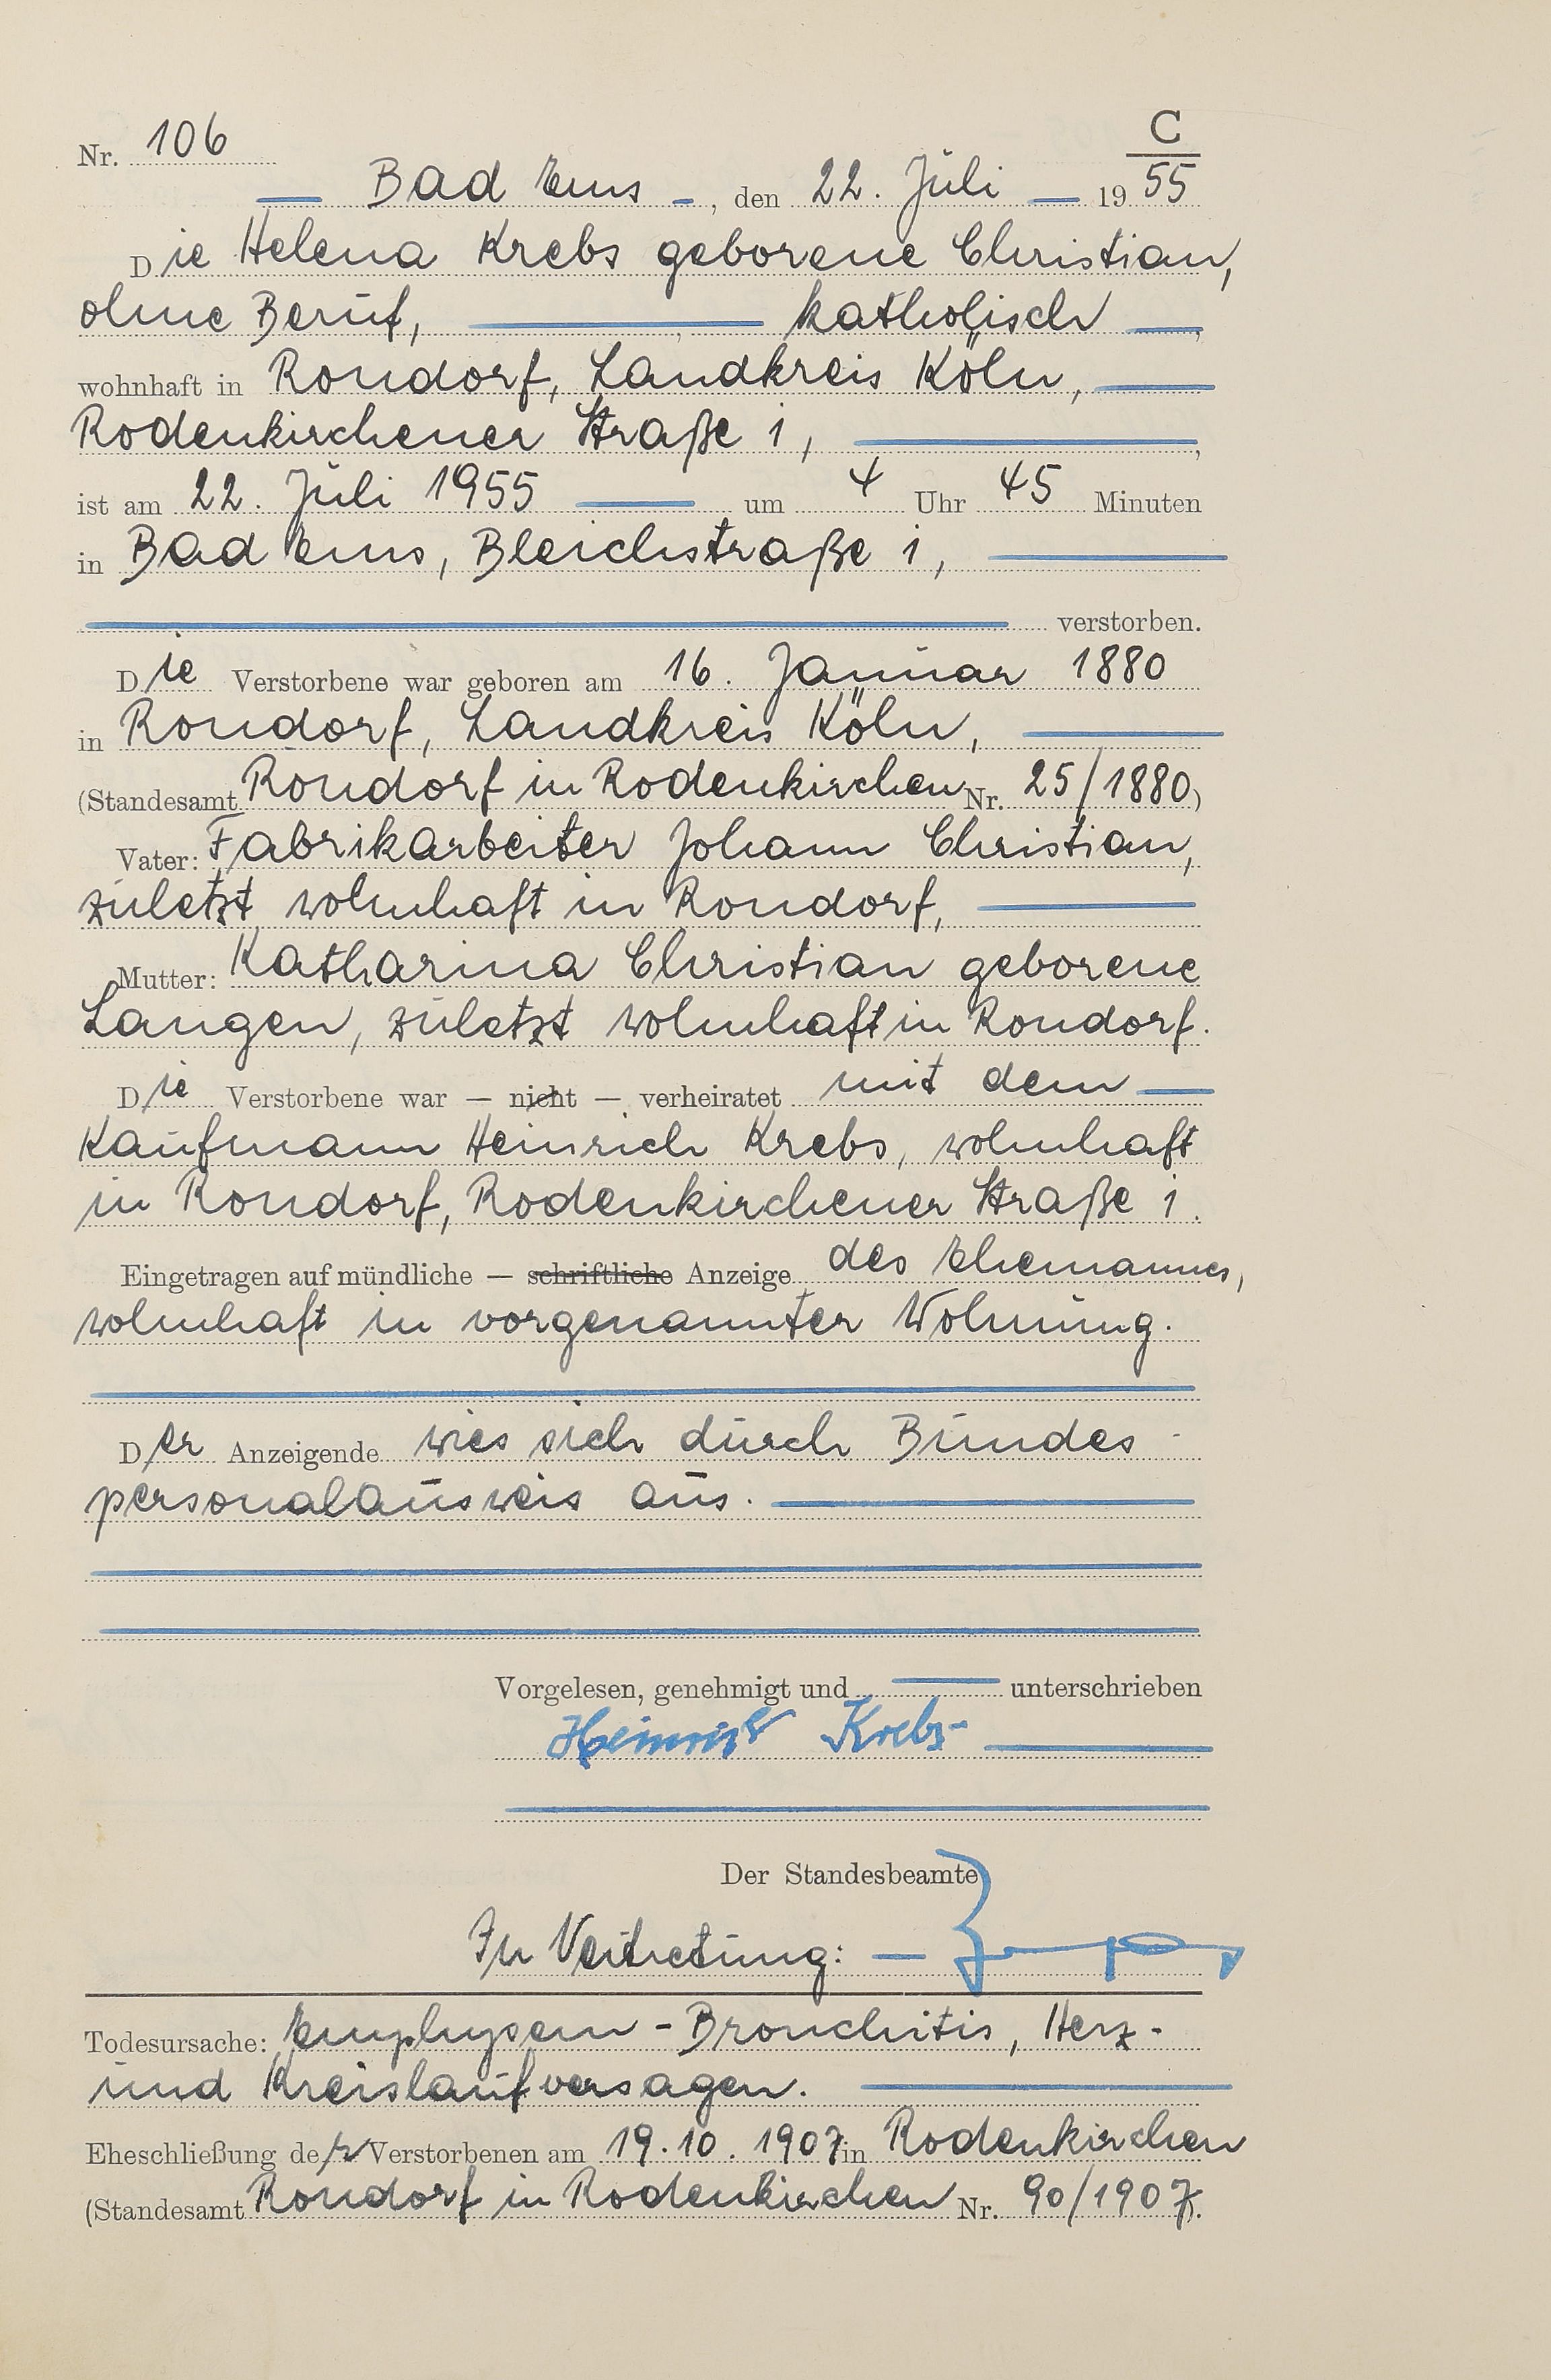 C
Nr. 106
Bad Ems, den 22. Juli 1955
Die Helena Krebs geborene Christian,
ohne Beruf, katholisch,
wohnhaft in Rondorf, Landkreis Köln,
Rodenkirchener Straße 1,
ist am 22. Juli 1955 um 4 Uhr 45 Minuten
in Bad Ems, Bleichstraße 1,
verstorben.
Die Verstorbene war geboren am 16. Januar 1880
in Rondorf, Landkreis Köln,
(Standesamt Rondorf in Rodenkirchen Nr. 25/1880)
Vater: Fabrikarbeiter Johann Christian,
zuletzt wohnhaft in Rondorf,
Mutter: Katharina Christian geborene
Langen, zuletzt wohnhaft in Rondorf.
Die Verstorbene war — nicht — verheiratet mit dem
Kaufmann Heinrich Krebs, wohnhaft
in Rondorf, Rodenkirchener Straße 1.
Eingetragen auf mündliche — schriftliche Anzeige des Ehemannes,
wohnhaft in vorgenannter Wohnung.
Der Anzeigende wies sich durch Bundes-
personalausweis aus.
Vorgelesen, genehmigt und unterschrieben
Heinrich Krebs
Der Standesbeamte
In Vertretung:
Todesursache: Emphysem-Bronchitis, Herz-
und Kreislaufversagen.
Eheschließung der Verstorbenen am 19.10.1907 in Rodenkirchen
(Standesamt Rondorf in Rodenkirchen Nr. 90/1907).